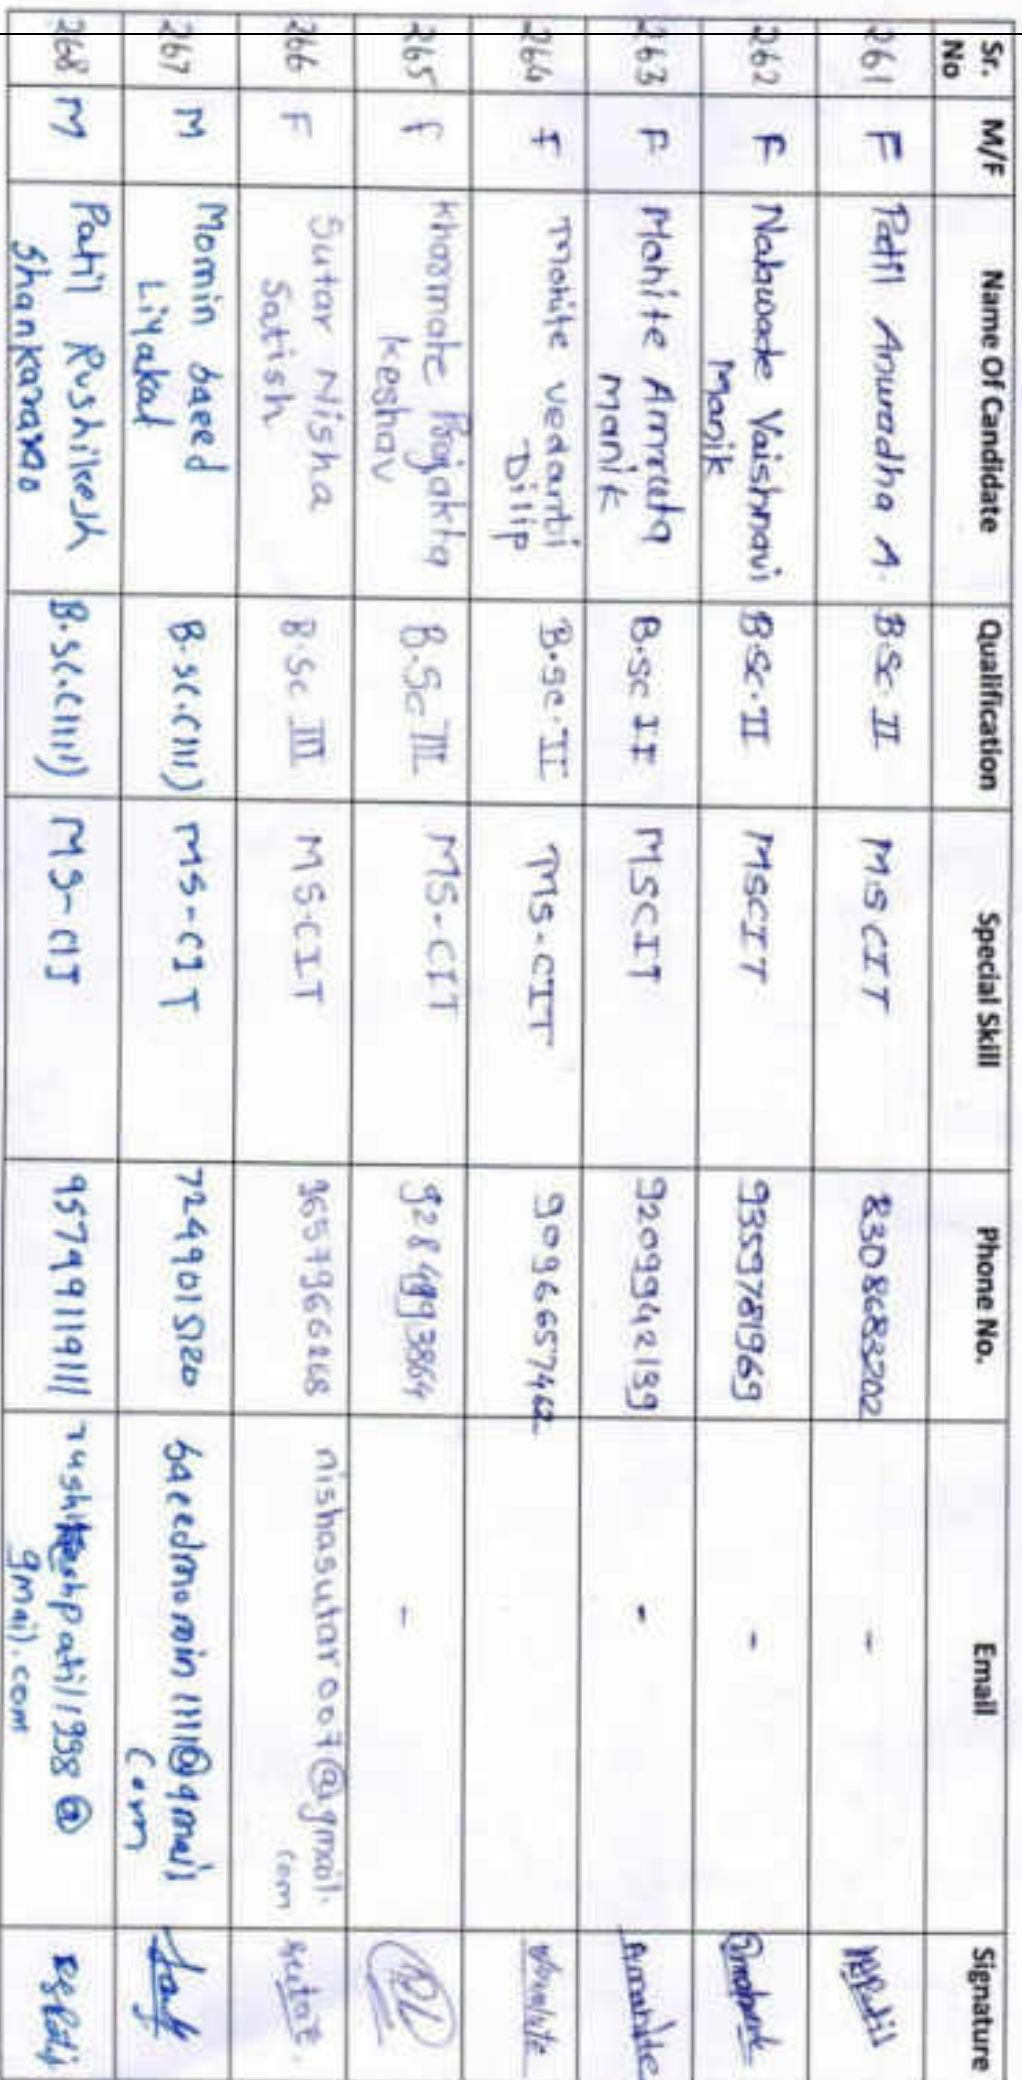 Sr. No M/F Name Of Candidate Qualification Special Skill Phone No. Email Signature
261 F Patil Anuradha A. B.Sc. II MSCIT 8308683202 -
262 F Nalawade Vaishnavi Manik B.Sc. II MSCIT 9359781969 -
263 F Mohite Amruta Manik B.sc II MSCIT 9209942139 -
264 F Mohite Vedanti Dilip B.sc. II MS-CIT 9096657462
265 f Prajakta Keshav B.Sc III MS-CIT -
266 F Sutar Nisha Satish B.Sc III MS.CIT nishasutar007@gmail.com Sutar.
267 M Momin Saeed Liyakat B.sc.(III) MS-CIT 7249015120 saeedmomin1111@gmail com
268 M Patil Rushikesh Shankarrao B.sc.(III) MS-CIT rushikeshpatil1998@
gmail.com